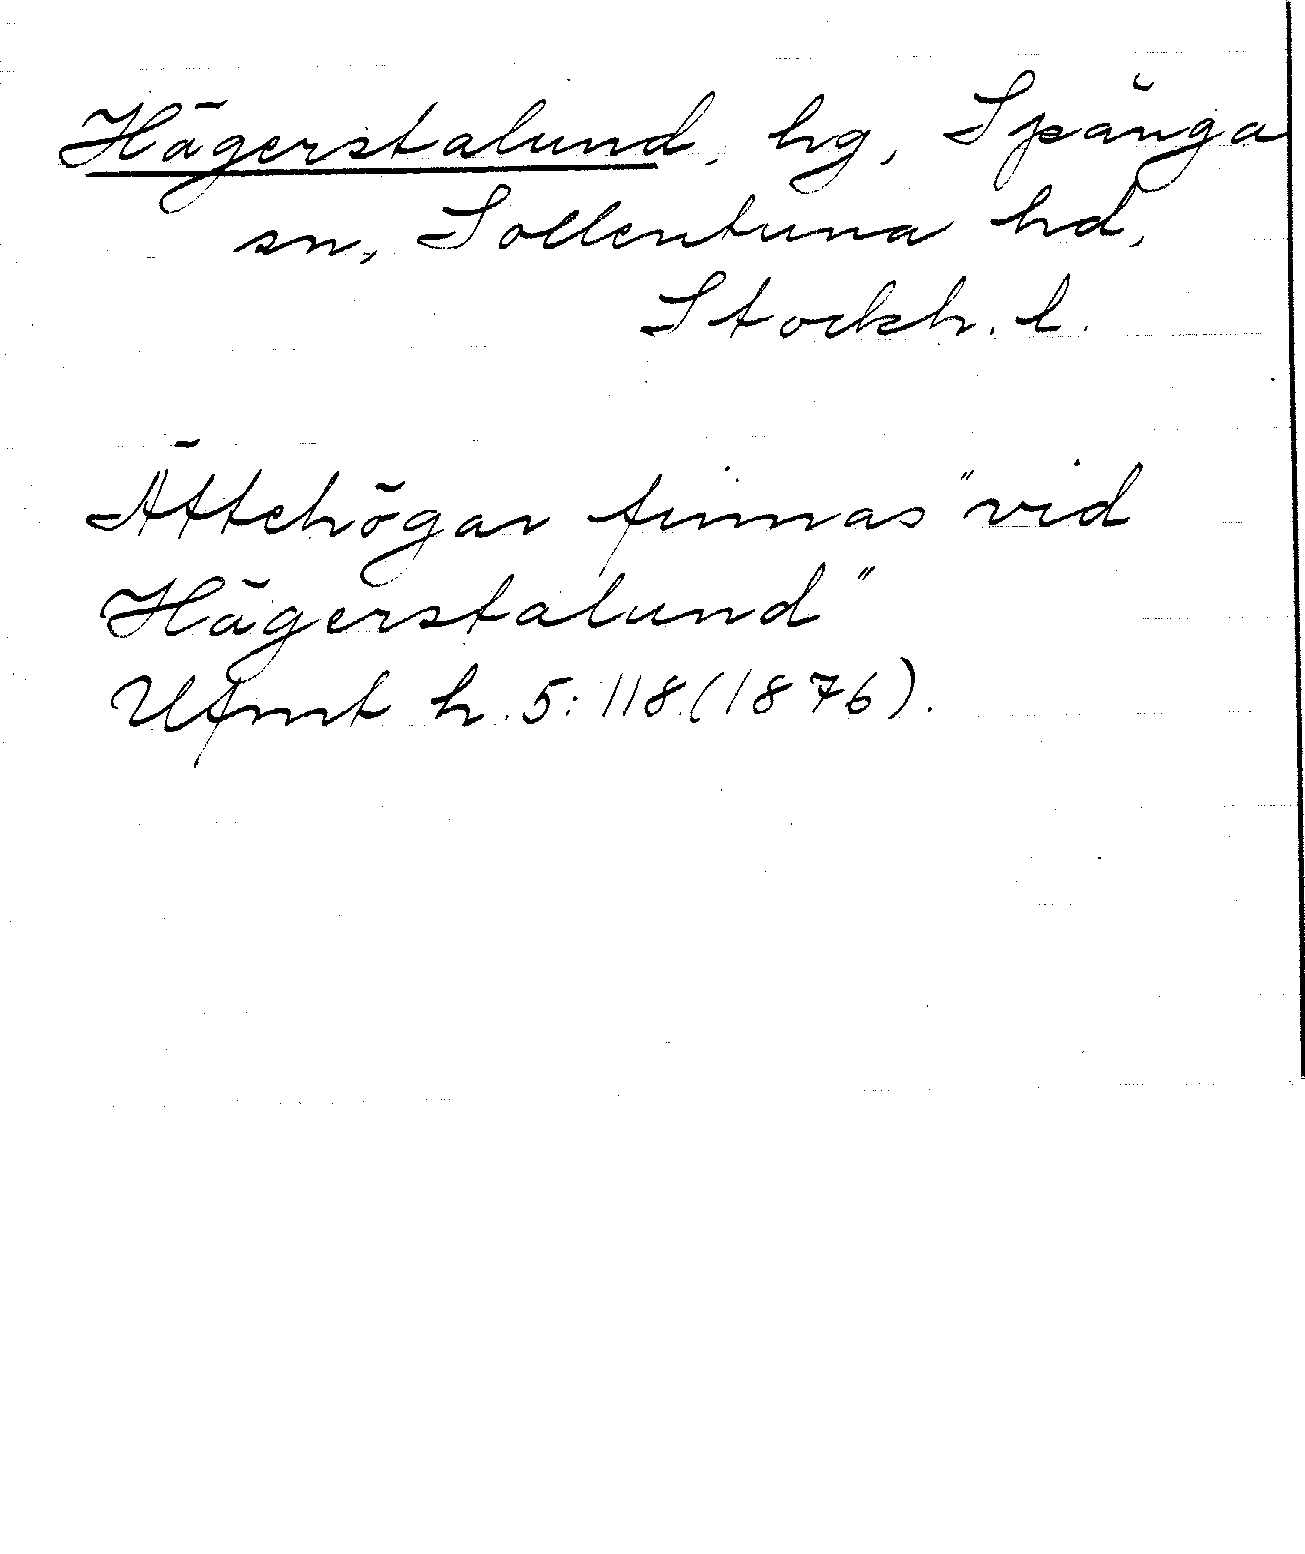 Hägerstalund, hg, Spånga
sn, Sollentuna hd,
Stockh. l.
Ättehögar finnas "vid
Hägerstalund"
Ufmt h. 5: 118 (1876).